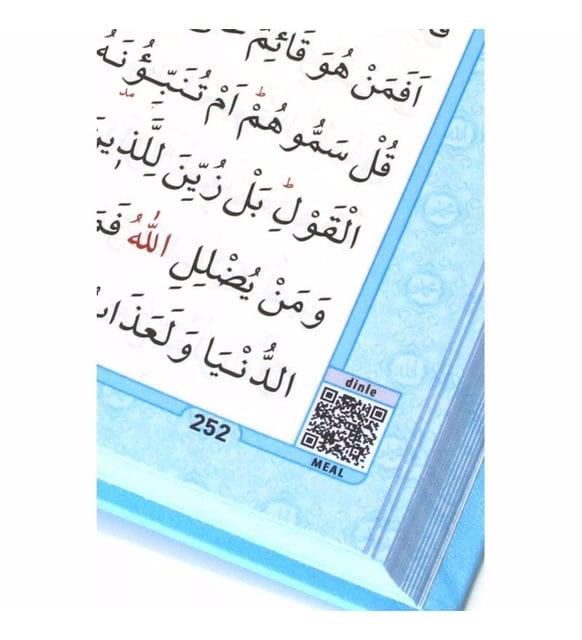 اَفَمَنْ هُوَ قَائِمٌ
قُلْ سَمُّوهُمْ اَمْ تُنَبِّؤُ۫نَهُ
الْقَوْلِ بَلْ زُيِّنَ لِلَّذ۪ينَ
وَمَنْ يُضْلِلِ اللّٰهُ فَمَا
الدُّنْيَا وَلَعَذَابُ
dinle
MEAL
252